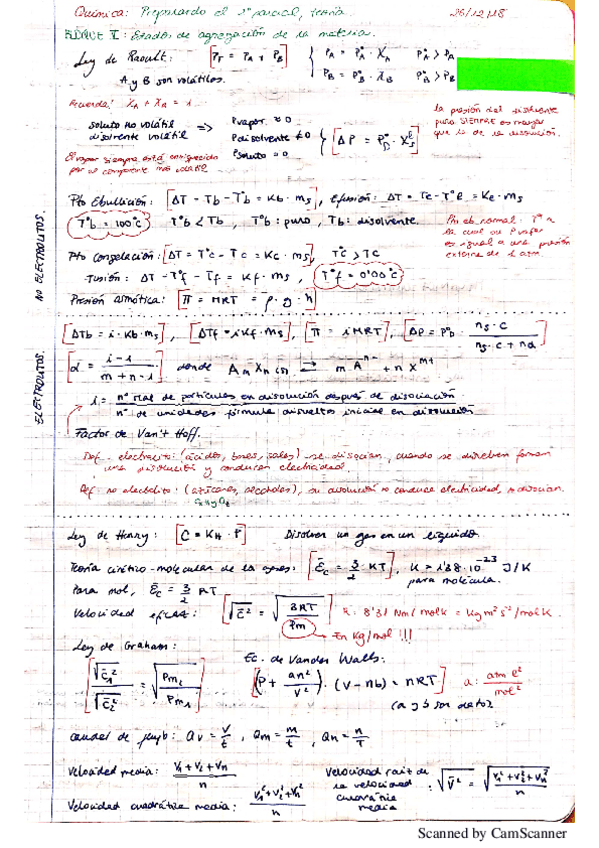 Química: Preparando el 2º parcial, teoría 26/12/18
BLOQUE V: Estados de agregación de la materia.
Ley de Raoult: [P_T = P_A + P_B] { P_A = P°_A · X_A P°_A > P_A
A y B son volátiles. P_B = P°_B · X_B P°_B > P_B
Recuerda! X_A + X_B = 1
la presión del disolvente
puro SIEMPRE es mayor
que la de la disolución.
soluto no volátil => Pvapor ≠ 0
disolvente volátil Pdisolvente ≠ 0 { [ΔP = P°_D · X_S]
Psoluto = 0
El vapor siempre está enriquecido
por el componente más volátil
NO ELECTROLITOS
Pto Ebullición: [ΔT = Tb - T°b = Kb · ms], Efusión: ΔT = Tc - T°f = Ke · ms
T°b = 100°C T°b < Tb, T°b: puro, Tb: disolvente.
Pto eb. normal: Tª a
la cual su Pvapor
es igual a una presión
externa de 1 atm.
Pto Congelación: [ΔT = T°c - Tc = Kc · ms], T°c > Tc
Fusión: ΔT = T°f - Tf = Kf · ms, T°f = 0'00°C
Presión osmótica: [π = MRT = ρ · g · h]
ELECTROLITOS
[ΔTb = i · Kb · ms], [ΔTf = i Kf · ms], [π = i MRT], [ΔP = P°D · ns · i / (ns · i + nd)]
[α = (i - 1) / (m + n - 1)] donde AmXn (s) ⇌ m A^n- + n X^m+
i = nº total de partículas en disolución después de disociación
nº de unidades fórmula disueltos inicial en disolución
Factor de Van't Hoff.
Def. electrolito: (ácidos, bases, sales) se disocian, cuando se disuelven forman
una disolución y conducen electricidad.
Def no electrolito: (azúcares, alcoholes), su disolución no conduce electricidad, no disocian.
Ley de Henry: [C = K_H · P] Disolver un gas en un líquido.
Teoría cinético-molecular de los gases: [Ēc = 3/2 · KT], K = 1'38 · 10^-23 J/K
para molécula.
Para mol, Ēc = 3/2 RT
Velocidad eficaz: [√c̄² = √(3RT / Pm)] R: 8'31 Nm/molK = Kg m² s⁻²/molK.
En Kg/mol !!!
Ley de Graham: Ec. de Vander Walls:
[√c̄₁² / √c̄₂² = √(Pm₂ / Pm₁)] [(P + an²/V²) · (V - nb) = nRT] a: atm l²/mol²
(a y b son datos
Caudal de flujo: Qv = V/t, Qm = m/t, Qn = n/t
Velocidad media: (v₁ + v₂ + vn) / n
Velocidad raíz de
la velocidad
cuadrática
media : √v̄² = √((v₁² + v₂² + vn²) / n)
Velocidad cuadrática media: (v₁² + v₂² + vn²) / n
Scanned by CamScanner